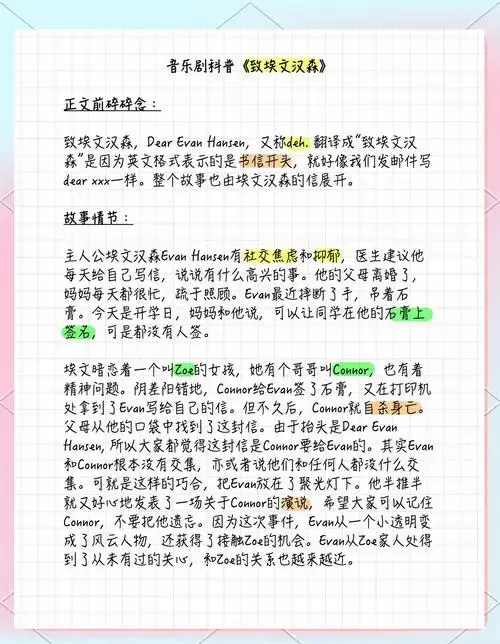 音乐剧科普《致埃文汉森》
正文前碎碎念：
致埃文汉森，Dear Evan Hansen，又称deh. 翻译成“致埃文汉
森”是因为英文格式表示的是书信开头，就好像我们发邮件写
dear xxx一样。整个故事也由埃文汉森的信展开。
故事情节：
主人公埃文汉森Evan Hansen有社交焦虑和抑郁，医生建议他
每天给自己写信，说说有什么高兴的事。他的父母离婚了，
妈妈每天都很忙，疏于照顾。Evan最近摔断了手，吊着石
膏。今天是开学日，妈妈和他说，可以让同学在他的石膏上
签名，可是都没有人签。
埃文暗恋着一个叫Zoe的女孩，她有个哥哥叫Connor，也有着
精神问题。阴差阳错地，Connor给Evan签了石膏，又在打印机
处拿到了Evan写给自己的信。但不久后，Connor就自杀身亡。
父母从他的口袋中找到了这封信。由于抬头是Dear Evan
Hansen, 所以大家都觉得这封信是Connor要给Evan的。其实Evan
和Connor根本没有交集，亦或者说他们和任何人都没什么交
集。可就是这样的巧合，把Evan放在了聚光灯下。他半推半
就又好心地发表了一场关于Connor的演说，希望大家可以记住
Connor，不要把他遗忘。因为这次事件，Evan从一个小透明变
成了风云人物，还获得了接触Zoe的机会。Evan从Zoe家人处得
到了从未有过的关心，和Zoe的关系也越来越近。